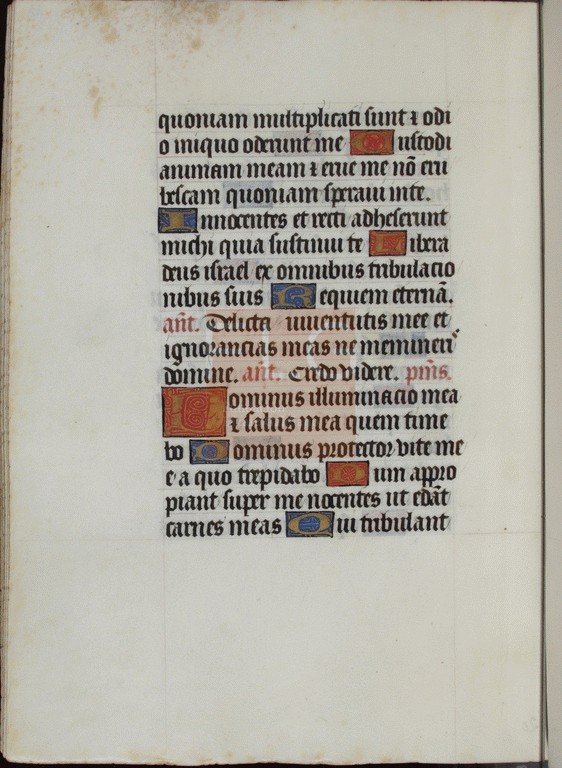 quoniam multiplicati sunt ⁊ odi
o iniquo oderunt me Custodi
animam meam ⁊ erue me nō eru
bescam quoniam speraui inte.
Innocentes et recti adheserunt
michi quia sustinui te Libera
deus israel ex omnibus tribulacio
nibus suis Requiem eternā.
añt. Delicta iuuentutis mee et
ignorancias meas ne memineris
domine. añt. Credo videre. p̄ms.
Dominus illuminacio mea
⁊ salus mea quem time
bo Dominus protector vite me
e a quo trepidabo Dum appro
piant super me nocentes ut edāt
carnes meas Qui tribulant